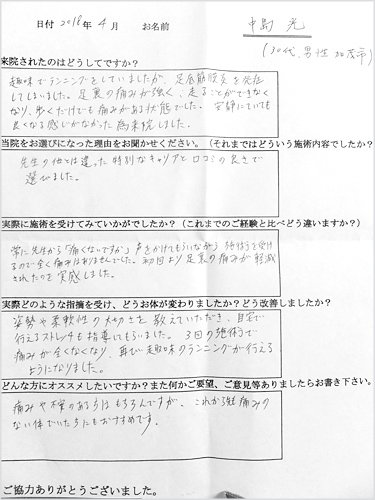 日付 2018年 4月 お名前 中島 光
(30代、男性 加茂市)
来院されたのはどうしてですか?
趣味でランニングをしていましたが、足底筋膜炎を発症
してしまいました。足裏の痛みが強く、走ることができなく
なり、歩くだけでも痛みがある状態でした。安静にしていても
良くなる感じがなかった為来院しました。
当院をお選びになった理由をお聞かせください。(それまではどういう施術内容でしたか?
先生の他とは違った特別なキャリアと口コミの良さで
選びました。
実際に施術を受けてみていかがでしたか?(これまでのご経験と比べどう違いますか?)
常に先生から「痛くないですか」声をかけてもらいながら施術を受け
るので全く痛みはありませんでした。初回より足裏の痛みが軽減
されたのを実感しました。
実際どのような指摘を受け、どうお体が変わりましたか?どう改善しましたか?
姿勢や柔軟性の大切さを教えていただき、自宅で
行えるストレッチも指導してもらいました。3回の施術で
痛みが全くなくなり、再び趣味のランニングが行える
ようになりました。
どんな方にオススメしたいですか?また何かご要望、ご意見等ありましたらお書き下さい。
痛みや不安のある方はもちろんですが、これから先痛みの
ない体でいたい方にもおすすめです。
ご協力ありがとうございました。